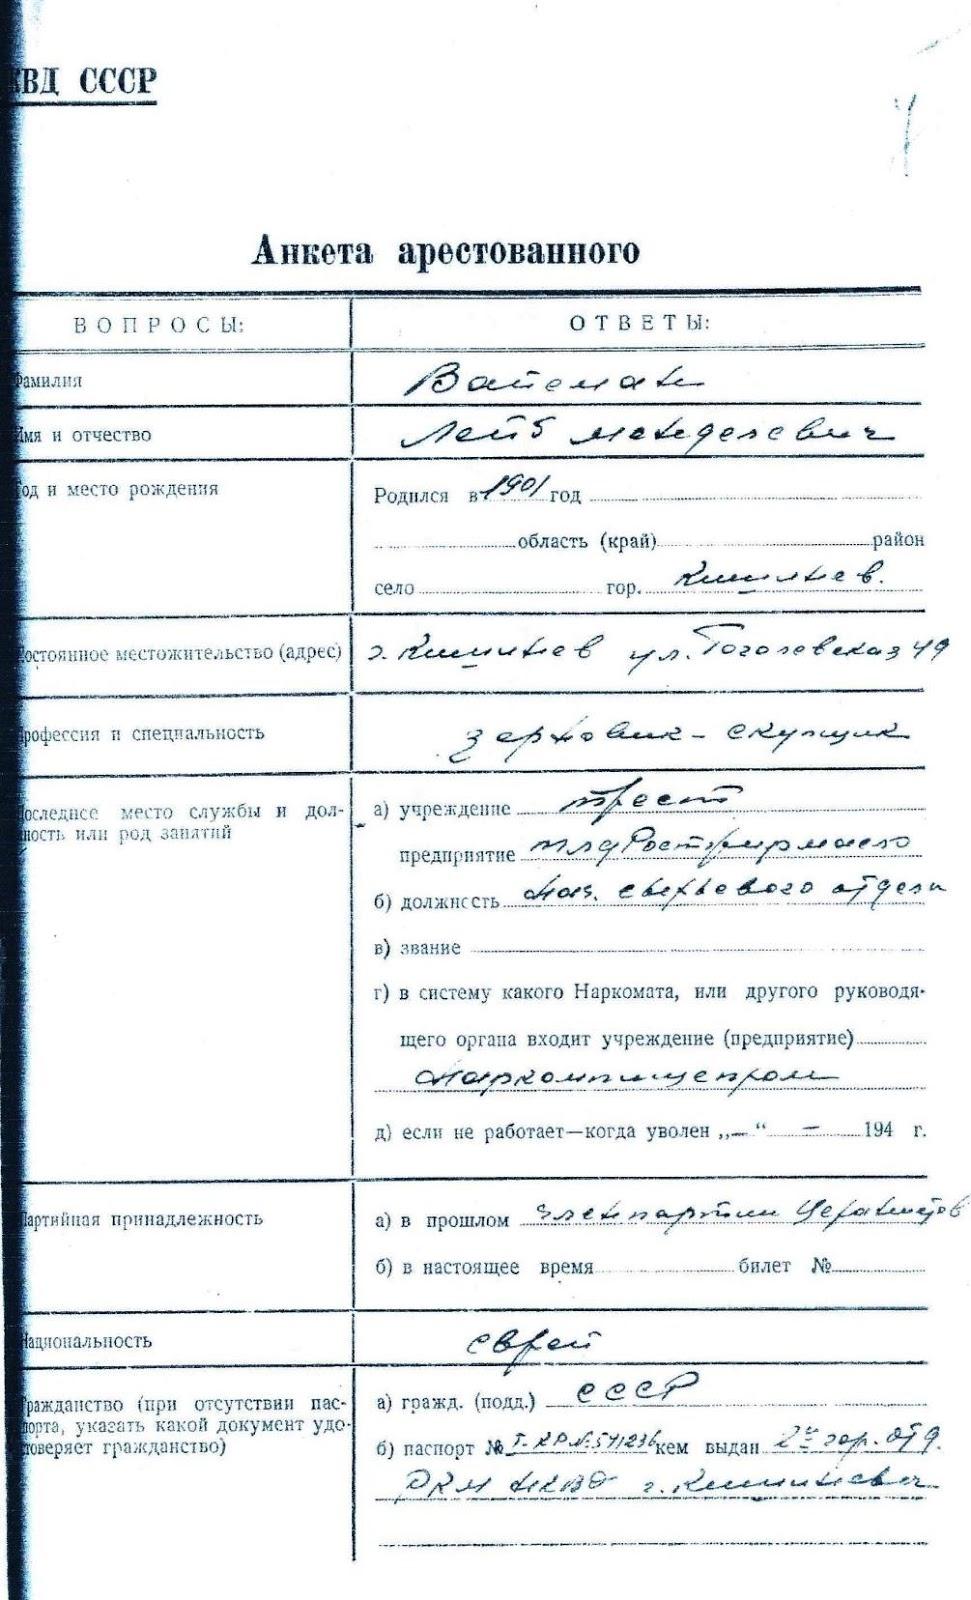 КВД СССР
Анкета арестованного
ВОПРОСЫ:
ОТВЕТЫ:
Фамилия
Вайсман
Имя и отчество
Лейб Менделевич
Год и место рождения
Родился в 1901 год
область (край) район
село гор. Кишинев.
Постоянное местожительство (адрес)
г. Кишинев ул. Гоголевская 49
Профессия и специальность
зерновик-скупщик
Последнее место службы и дол-
жность или род занятий
а) учреждение трест
предприятие
б) должность Нач. отдела
в) звание
г) в систему какого Наркомата, или другого руководя-
щего органа входит учреждение (предприятие)
Наркомпищепром
д) если не работает—когда уволен „—“ — 194 г.
Партийная принадлежность
а) в прошлом член партии
б) в настоящее время билет №
Национальность
еврей
Гражданство (при отсутствии пас-
порта, указать какой документ удо-
стоверяет гражданство)
а) гражд. (подд.) СССР
б) паспорт № 541236 кем выдан 2м гор. отд.
РКМ НКВД г. Кишинева